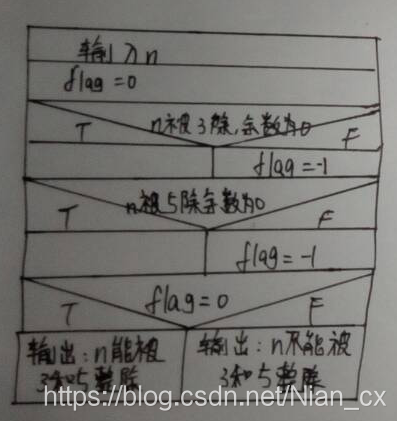 输入n
flag=0
n被3除,余数为0
T
F
flag=-1
n被5除余数为0
T
F
flag=-1
flag=0
T
F
输出:n能被
3和5整除
输出:n不能被
3和5整除
https://blog.csdn.net/Nian_cx